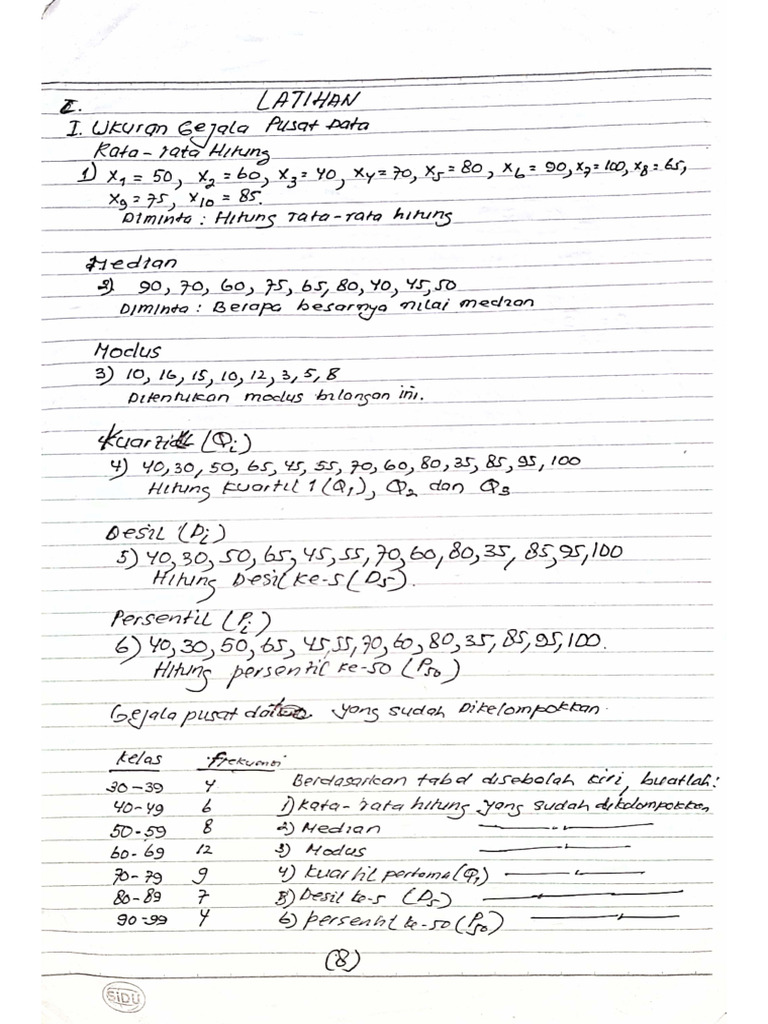 I. LATIHAN
I. Ukuran Gejala Pusat Data
Rata-rata Hitung
1) X1 = 50, X2 = 60, X3 = 40, X4 = 70, X5 = 80, X6 = 90, X7 = 100, X8 = 65,
X9 = 75, X10 = 85.
Diminta : Hitung rata-rata hitung
Median
2) 90, 70, 60, 75, 65, 80, 40, 45, 50
Diminta : Berapa besarnya nilai median
Modus
3) 10, 16, 15, 10, 12, 3, 5, 8
Ditentukan modus bilangan ini.
Kuartil (Qi)
4) 40, 30, 50, 65, 45, 55, 70, 60, 80, 35, 85, 95, 100
Hitung Kuartil 1 (Q1), Q2 dan Q3
Desil (Di)
5) 40, 30, 50, 65, 45, 55, 70, 60, 80, 35, 85, 95, 100
Hitung Desil ke-5 (D5).
Persentil (Pi)
6) 40, 30, 50, 65, 45, 55, 70, 60, 80, 35, 85, 95, 100.
Hitung persentil ke-50 (P50)
Gejala pusat data yang sudah Dikelompokkan.
Kelas Frekuensi
30-39 4 Berdasarkan tabel disebelah kiri, buatlah:
40-49 6 1) Rata-rata hitung yang sudah dikelompokkan
50-59 8 2) Median
60-69 12 3) Modus
70-79 9 4) Kuartil pertama (Q1)
80-89 7 5) Desil ke-5 (D5)
90-99 4 6) persentil ke-50 (P50)
(8)
SiDU